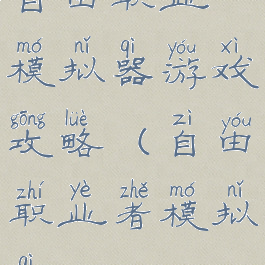 自由职业
mó nǐ qì yóu xì
模拟器游戏
gōng lüè zì yóu
攻略（自由
zhí yè zhě mó nǐ
职业者模拟
qì